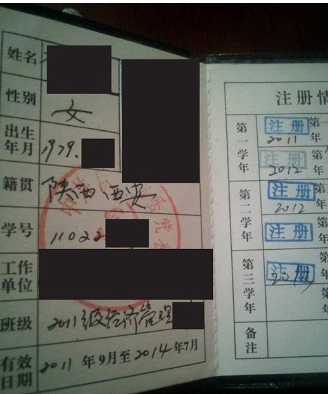 姓名
性别 女
出生年月 1979.
籍贯 陕西西安
学号 11022
工作单位
班级 2011级经济管理
有效日期 2011年9月至2014年7月
注册情
第一学年 注册 第一
2011
注册
2012
第二学年 注册 第
2012
注册 第
第三学年 注册 第
备注